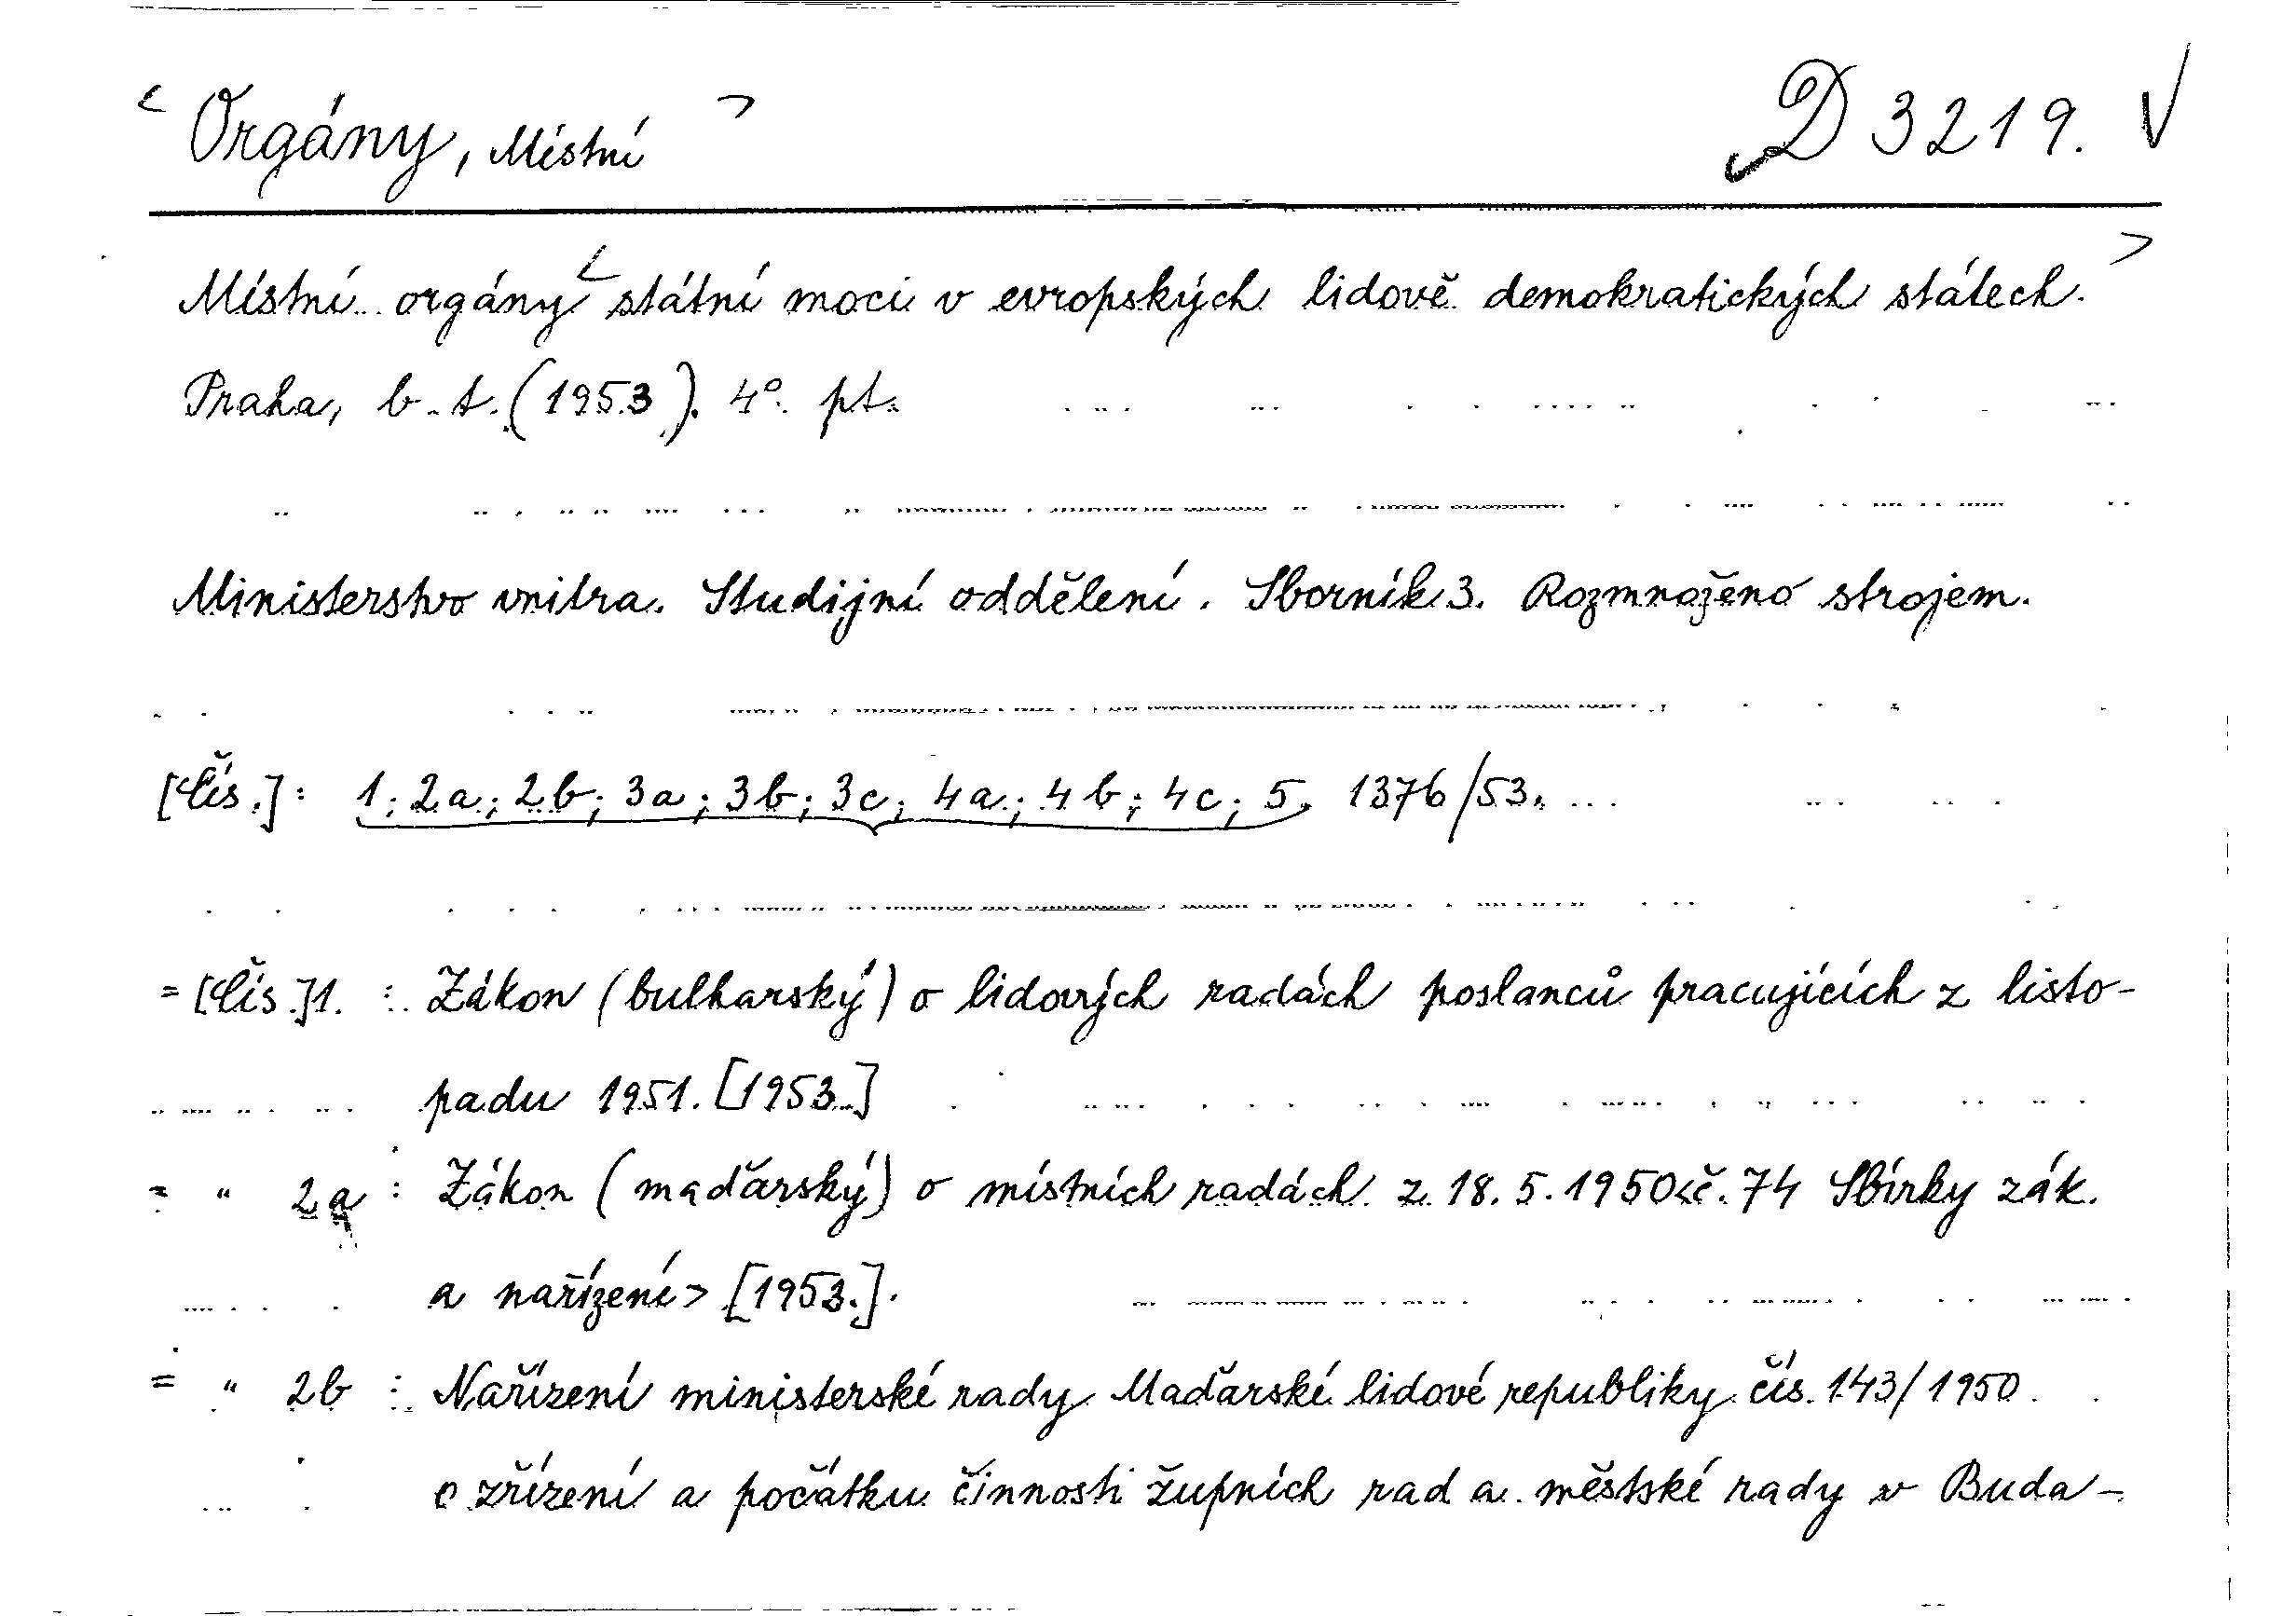 < Orgány, Místní > D 3219. V
Místní orgány < státní moci v evropských lidově demokratických státech. >
Praha, b. t. (1953). 4°. pt.
Ministerstvo vnitra. Studijní oddělení. Sborník 3. Rozmnoženo strojem.
[Čís.]: 1; 2a; 2b; 3a; 3b; 3c; 4a; 4b; 4c; 5. 1376/53.
= [Čís.] 1. : Zákon (bulharský) o lidových radách poslanců pracujících z listo-
padu 1951. [1953.]
= " 2a : Zákon (maďarský) o místních radách z 18. 5. 1950 <č. 74 Sbírky zák.
a nařízení> [1953.].
= " 2b : Nařízení ministerské rady Maďarské lidové republiky čís. 143/1950
o zřízení a počátku činnosti župních rad a městské rady v Buda-